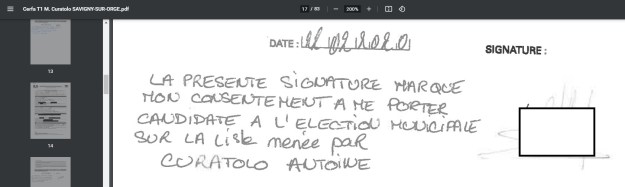 Cerfa T1 M. Curatolo SAVIGNY-SUR-ORGE.pdf
17 / 83
200%
13
14
DATE :
SIGNATURE :
LA PRESENTE SIGNATURE MARQUE
MON CONSENTEMENT A ME PORTER
CANDIDATE A L'ELECTION MUNICIPALE
SUR LA LISte menée paR
CURATOLO ANTOINE